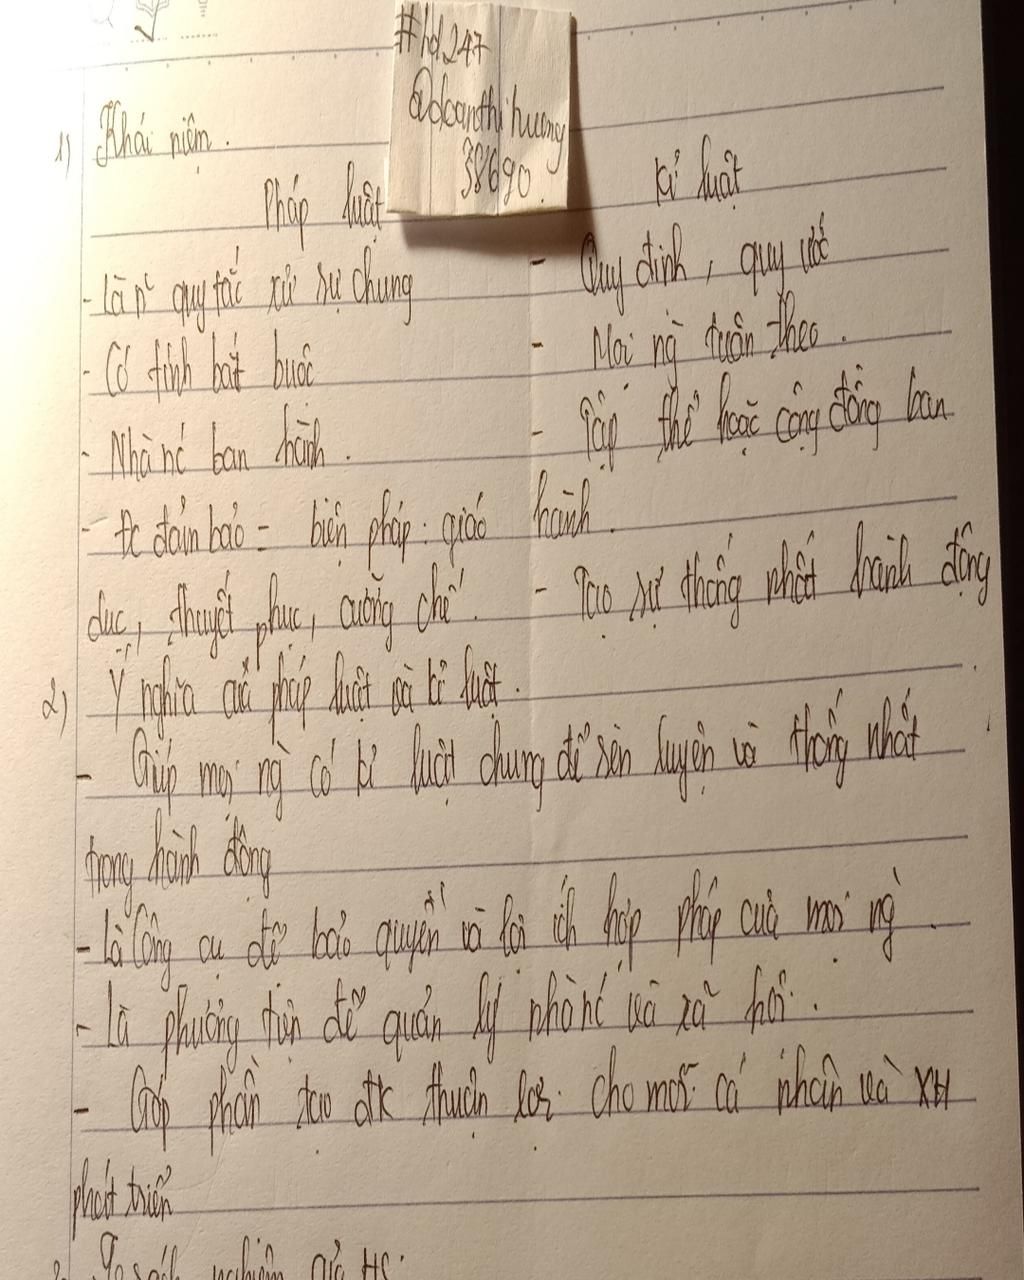 #Hd247
@doanthihuong
38690.
1) Khái niệm.
Pháp luật
Kỉ luật
- Là n~ quy tắc xử sự chung
- Quy định, quy ước
- Có tính bắt buộc
- Mọi ng` tuân theo.
- Nhà nc ban hành.
- Tập thể hoặc cộng đồng ban
- Đc đảm bảo = biện pháp: giáo
hành.
dục, thuyết phục, cưỡng chế.
- Tạo sự thống nhất hành động
2) Ý nghĩa của pháp luật và kỉ luật.
- Giúp mọi ng` có kỉ luật chung để rèn luyện và thống nhất
trong hành động
- Là công cụ để bảo quyền và lợi ích hợp pháp của mọi ng`.
- Là phương tiện để quản lý nhà nc và xã hội.
- Góp phần tạo đk thuận lợi cho mỗi cá nhân và XH
phát triển
nghiệm của HS: